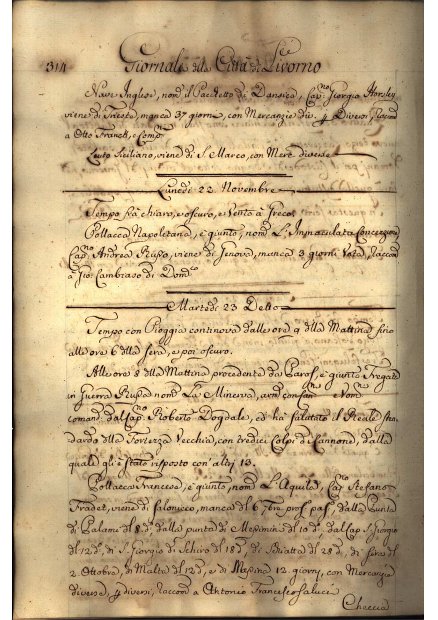 314 Giornale della Città di Livorno
Nave Inglese, nom.ta il Pacchetto di Danzica, Cap.no Giorgio Horsley
viene di Trieste, manca 37 giorni, con Mercanzie div. 4 Diversi, raccom.
a Otto Franck, e Comp.
Leuto Siciliano, viene di S. Marco, con Merc. diverse
Lunedì 22 Novembre
Tempo frà chiaro, e oscuro, e Vento à Greco.
Pollacca Napoletana, è giunto, nom.ta L'Immaculata Concezione
Cap.no Andrea Russo, viene di Genova, manca 3 giorni Vota, raccom.
a Gio: Cambiaso di Dom.co
Martedì 23 Detto
Tempo con Pioggia continova dalle ore 9 della Mattina fino
alle ore 6 della sera, e poi oscuro.
Alle ore 8 della Mattina procedente da Paros, è giunto Fregata
in Guerra Russa nom.ta La Minerva, arm. con Can. e Uom.
comand. dal Cap.no Roberto Dogdale, ed hà salutato il Reale Sten-
dardo della Fortezza Vecchia, con tredici Colpi di Cannone, dalla
quale gli è stato risposto con altri 13.
Pollacca Francese, è giunto, nom.ta L'Aquila, Cap.no Stefano
Tradet, viene di Salonicco, manca del 6, 7bre pros. pas. dalla Punta
di Palami del 8 d., dalla punta di Messina di 10 d., dal Cap. S. Giorgio
del 12 d., di S. Giorgio di Schiro del 18 d., di Sciatta del 28 d., di
2 Ottobre, di Malta del 12 d., e di Messina 12 giorni, con Mercanzie
diverse, 4 diversi, raccom. a Antonio Francesco Saluci
Chaccia